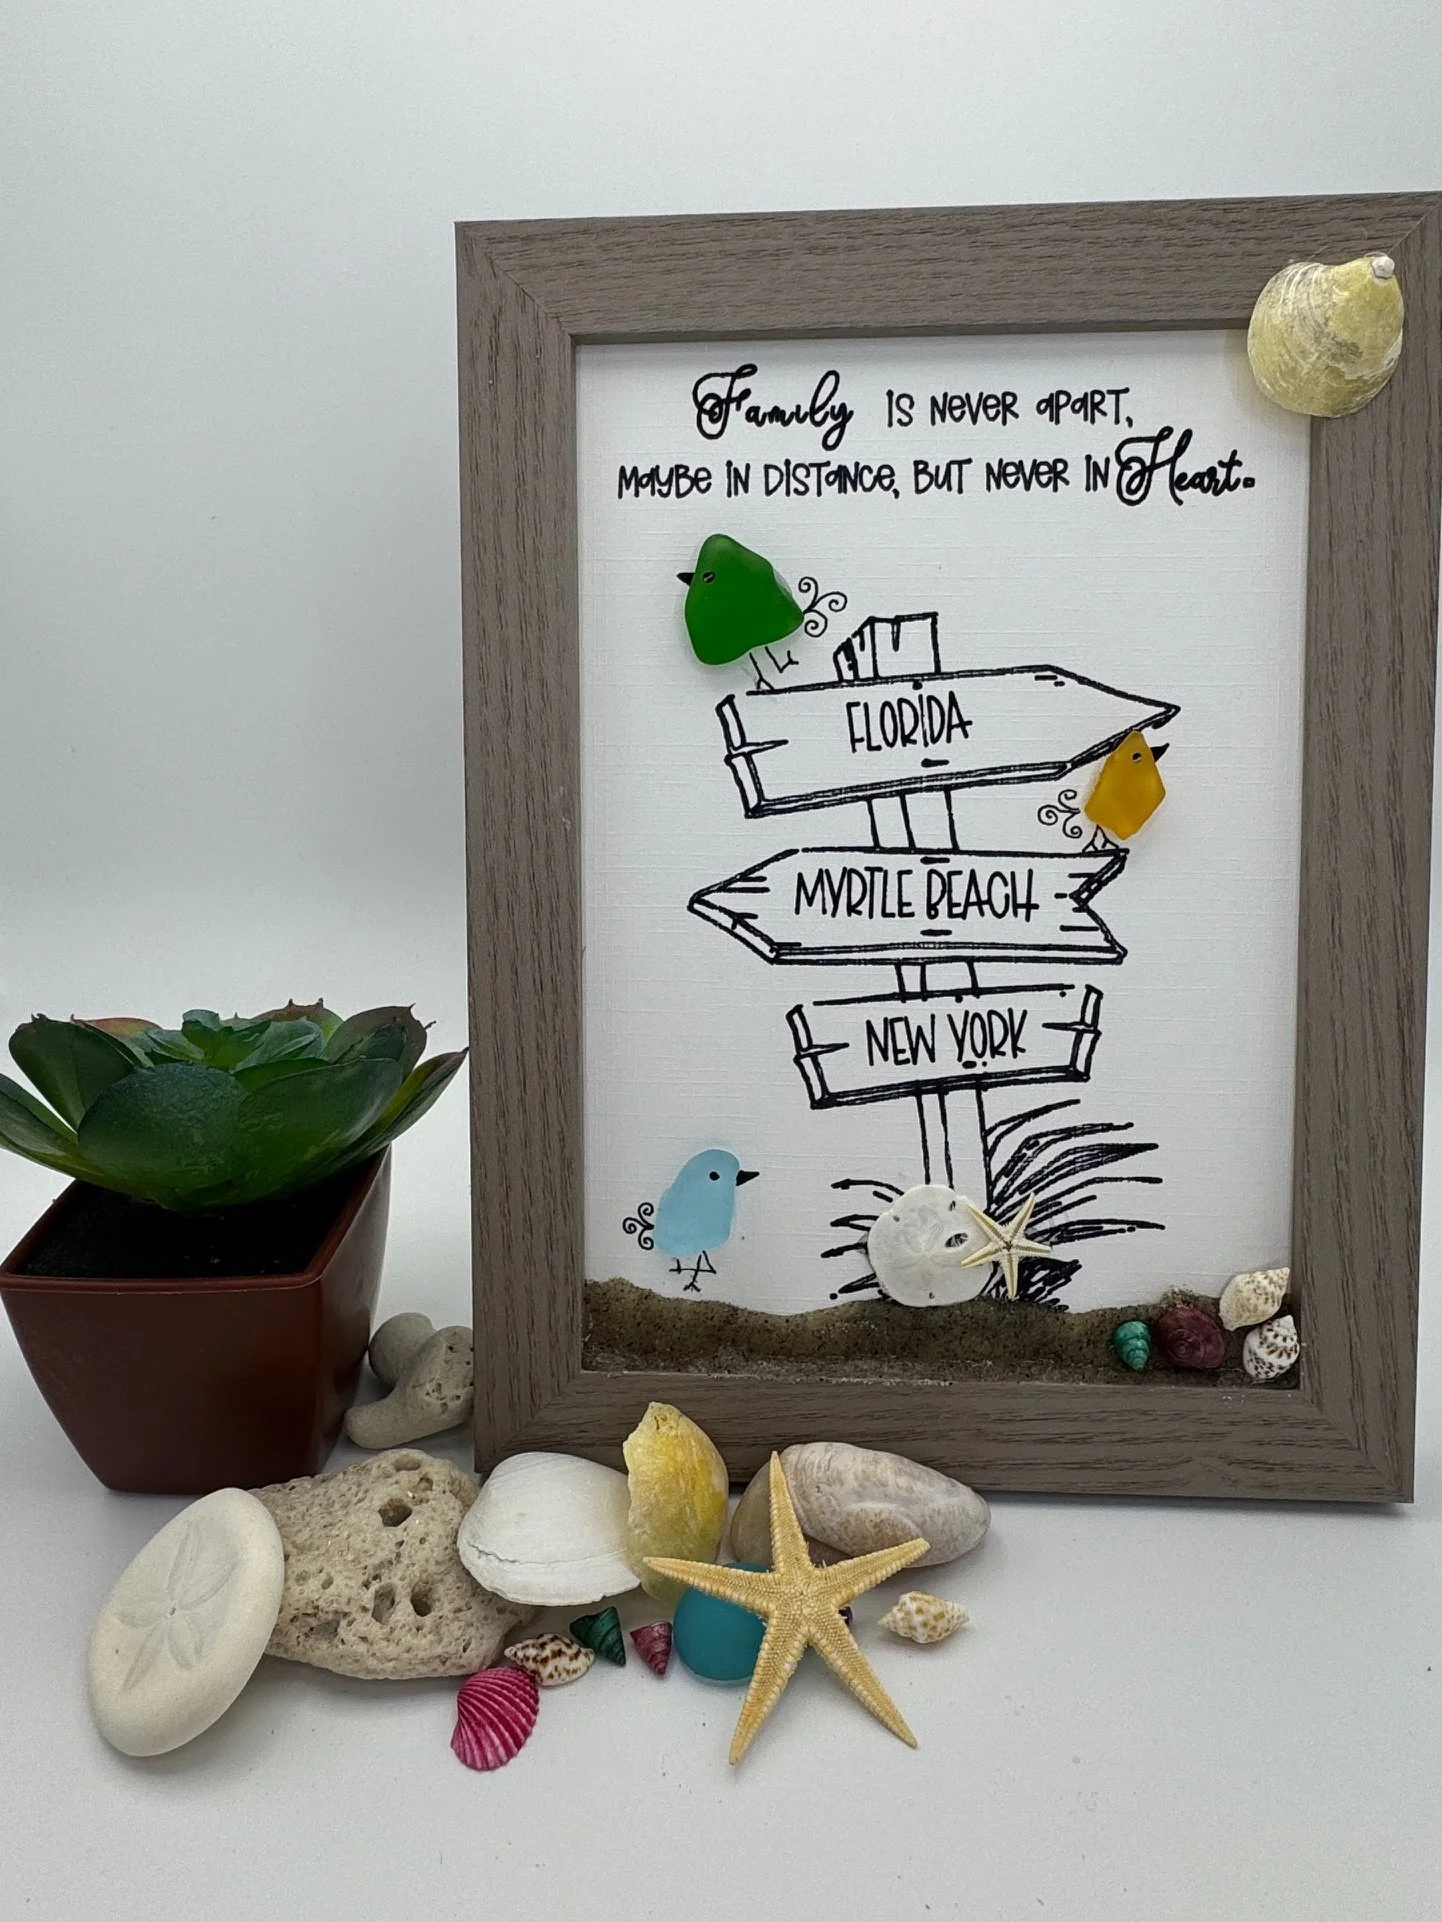 Family IS NEVER APART,
MAYBE IN DISTANCE, BUT NEVER IN Heart.
FLORIDA
MYRTLE BEACH
NEW YORK